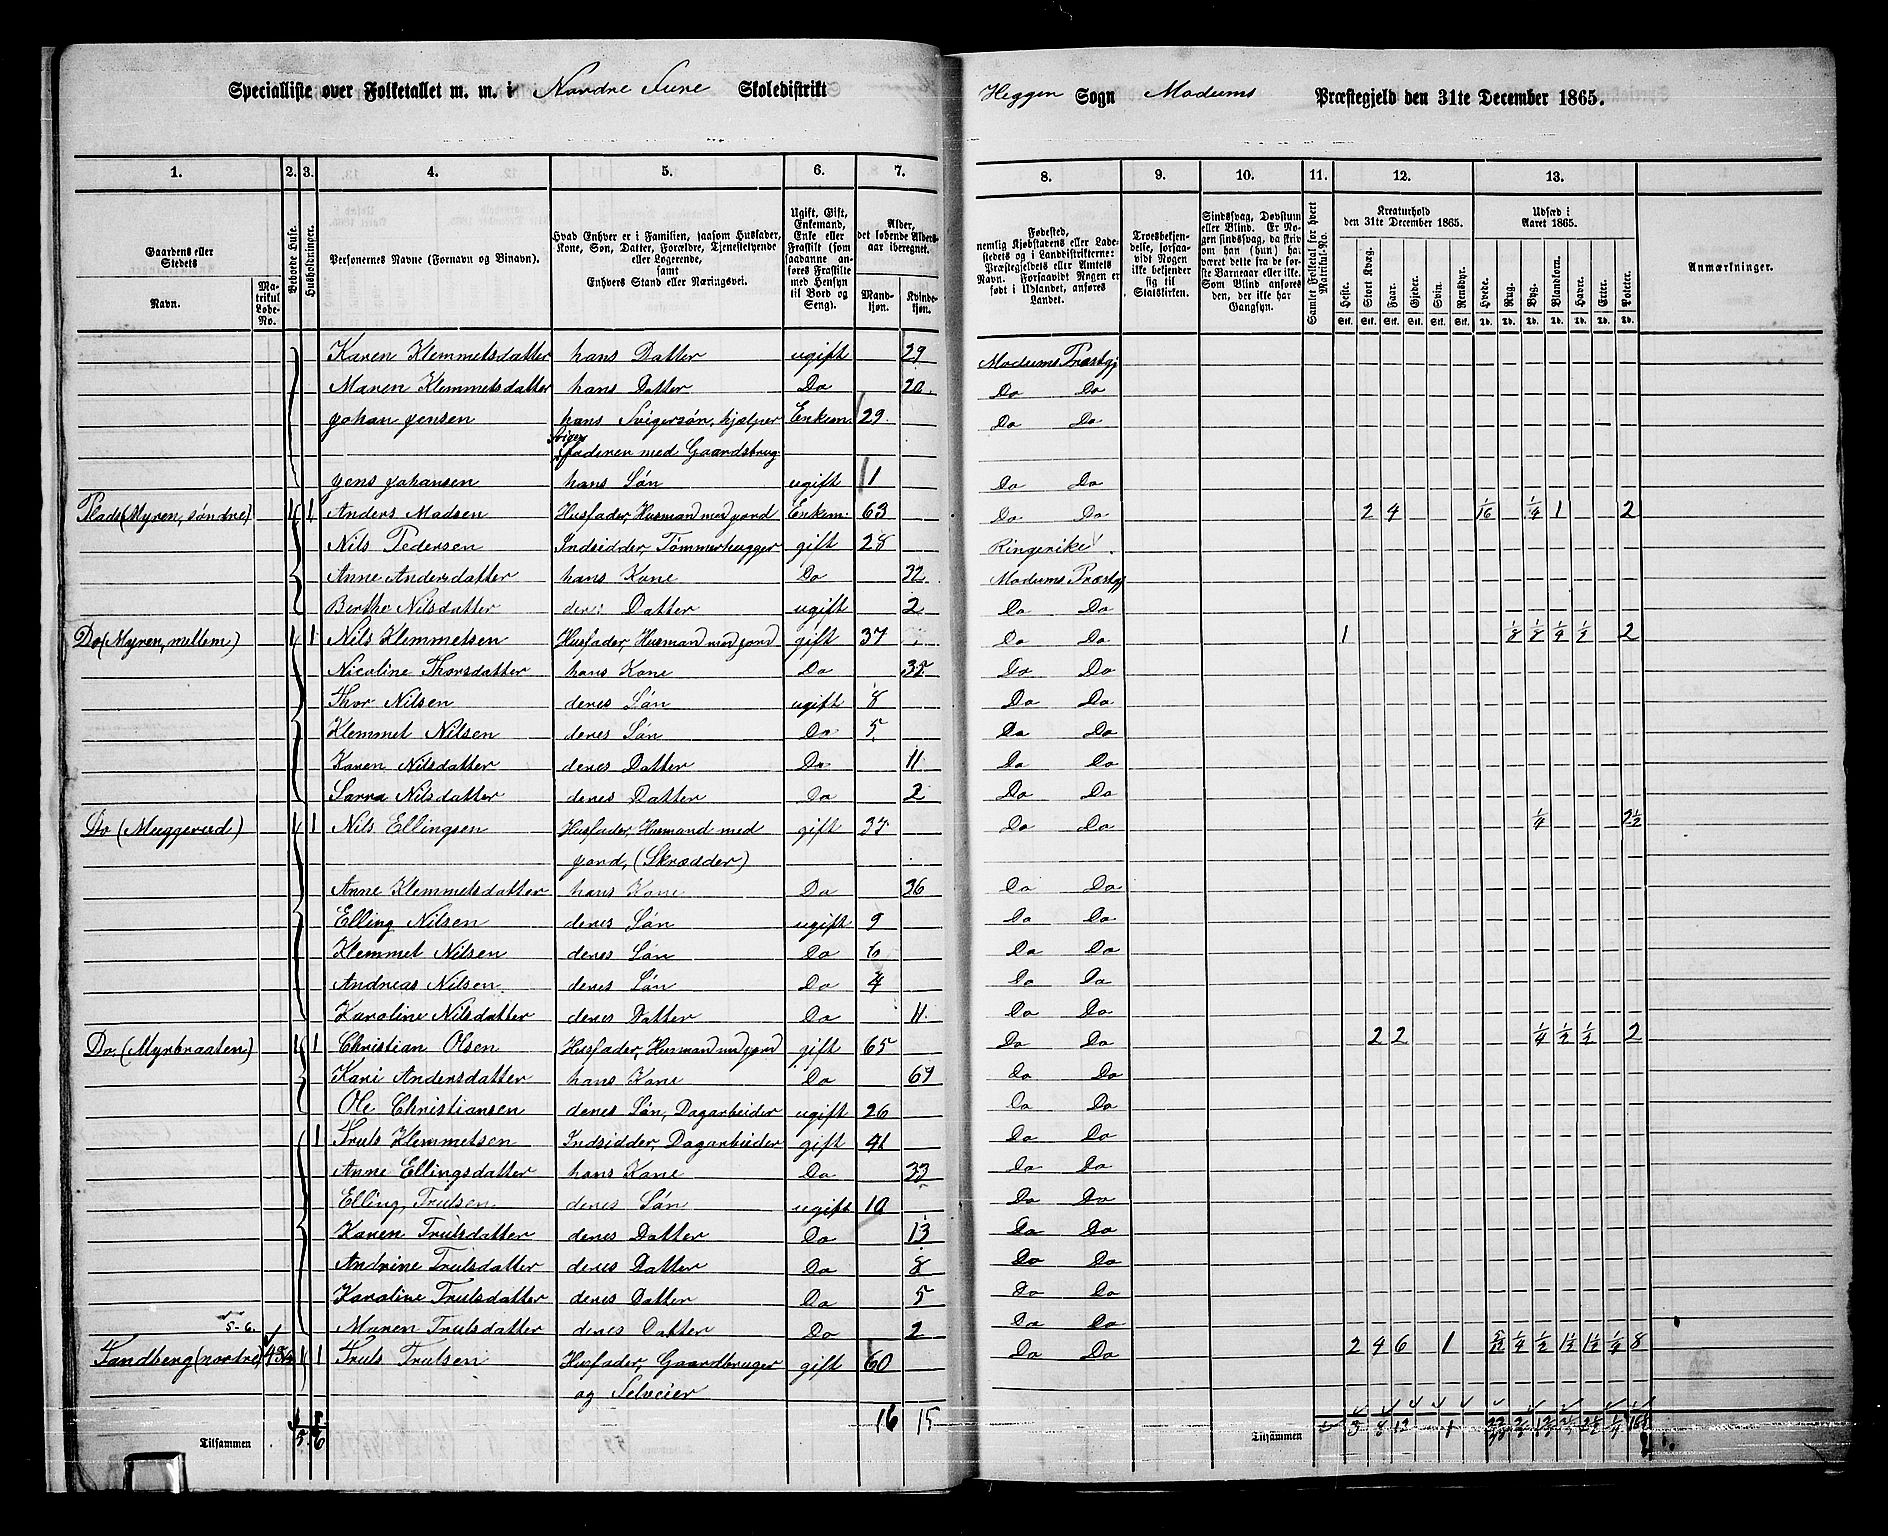 Specialliste over Folketallet m. m. i Nordre Sune Skoledistrikt Heggen Sogn Modums Præstegjeld den 31te December 1865.
1. 2. 3. 4. 5. 6. 7. 8. 9. 10. 11. 12. 13.
Gaardens eller Stedets
Navn.
Matrikul Løbe-No.
Beboede Huse.
Husholdninger.
Personernes Navne (Fornavn og Binavn).
Hvad Enhver er i Familien, saasom Husfader, Kone, Søn, Datter, Forældre, Tjenestetyende eller Logerende, samt Enhvers Stand eller Næringsvei.
Ugift, Gift, Enkemand, Enke eller Fraskilt (som saadanne anføres Fraskilte med Hensyn til Bord og Seng).
Alder, det løbende Aldersaar iberegnet.
Mandkjøn. Kvindekjøn.
Fødested, nemlig Kjøbstadens eller Ladestedets og i Landdistrikterne: Præstegjeldets eller Amtets Navn. Forsaavidt Nogen er født i Udlandet, anføres Landet.
Troesbekjendelse, forsaavidt Nogen ikke bekjender sig til Statskirken.
Sindssvag, Døvstum eller Blind. Er Nogen sindssvag, da skrives om han (hun) har været dette fra de første Barneaar eller ikke. Som Blind anføres den, der ikke har Gangsyn.
Samlet Folketal for hvert Matrikul-No.
Kreaturhold den 31te December 1865.
Heste. Stort Kvæg. Faar. Gjeder. Svin. Rensdyr.
Udsæd i Aaret 1865.
Hvede. Rug. Byg. Blandkorn. Havre. Erter. Poteter.
Stk. Stk. Stk. Stk. Stk. Stk. Td. Td. Td. Td. Td. Td. Td.
Anmærkninger.
Karen Klemmetsdatter hans Datter ugift 29 Modums Præstgj
Maren Klemmetsdatter hans Datter Do 20. Do Do
Johan Jensen hans Svigersøn, hjælper Enkem. 29. Do Do
Sviger faderen med Gaardsbrug
Jens Johansen hans Søn ugift 1 Do Do
Plads (Myren, søndre) 1 1 Anders Madsen Husfader, Husmand med jord Enkem. 63 Do Do 2 4 1/16 1/4 1 2
Nils Pedersen Indsidder, Tømmerhugger gift 28 Ringerike
Anne Andersdatter hans Kone Do 32. Modums Præstgj
Berthe Nilsdatter deres Datter ugift 2 Do Do
Do (Myren, mellem) 1 1 Nils Klemmetsen Husfader, Husmand med jord gift 37 Do Do 1 1/8 1/2 1/4 1/2 2
Nicoline Thorsdatter hans Kone Do 35 Do Do
Thor Nilsen deres Søn ugift 8 Do Do
Klemmet Nilsen deres Søn Do 5 Do Do
Karen Nilsdatter deres Datter Do 11 Do Do
Sarra Nilsdatter deres Datter Do 2 Do Do
Do (Muggerud) 1 1 Nils Ellingsen Husfader, Husmand med gift 37 Do Do 1/4 2 1/2
jord, (Skrædder)
Anne Klemmetsdatter hans Kone Do 36 Do Do
Elling Nilsen deres Søn ugift 9 Do Do
Klemmet Nilsen deres Søn Do 6 Do Do
Andreas Nilsen deres Søn Do 4 Do Do
Karoline Nilsdatter deres Datter Do 11. Do Do
Do (Myrbraaten) 1 1 Christian Olsen Husfader, Husmand med jord gift 65 Do Do 2 2 1/4 1/2 1/2 2
Kari Andersdatter hans Kone Do 67 Do Do
Ole Christiansen deres Søn, Dagarbeider ugift 26 Do Do
1 Truls Klemmetsen Indsidder, Dagarbeider gift 41 Do Do
Anne Ellingsdatter hans Kone Do 33 Do Do
Elling Trulsen deres Søn ugift 10 Do Do
Karen Trulsdatter deres Datter Do 13 Do Do
Andrine Trulsdatter deres Datter Do 8 Do Do
Karoline Trulsdatter deres Datter Do 5 Do Do
5-6. Maren Trulsdatter deres Datter Do 2 Do Do
Tandberg (nordre) 1 1 Truls Trulsen Husfader, Gaardbruger gift 60 Do Do 2 4 6 1 1/4 1/2 1 1/2 1 1/2 1/4 8
og Selveier
16 15
Tilsammen 5 6
Tilsammen 3 8 12 1